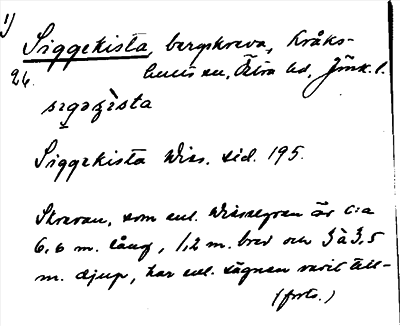 1)
Siggekista, bergskreva, Kråks-
26.
hults sn, Östra hd, Jönk. l.
sɪgəʒ̀ɪsta
Siggekista Wiss. sid. 195.
Skrevan, som enl. Wisselgren är c:a
6,6 m. lång, 1,2 m. bred och 3 à 3,5
m. djup, har enl. sägnen varit till-
(forts.)